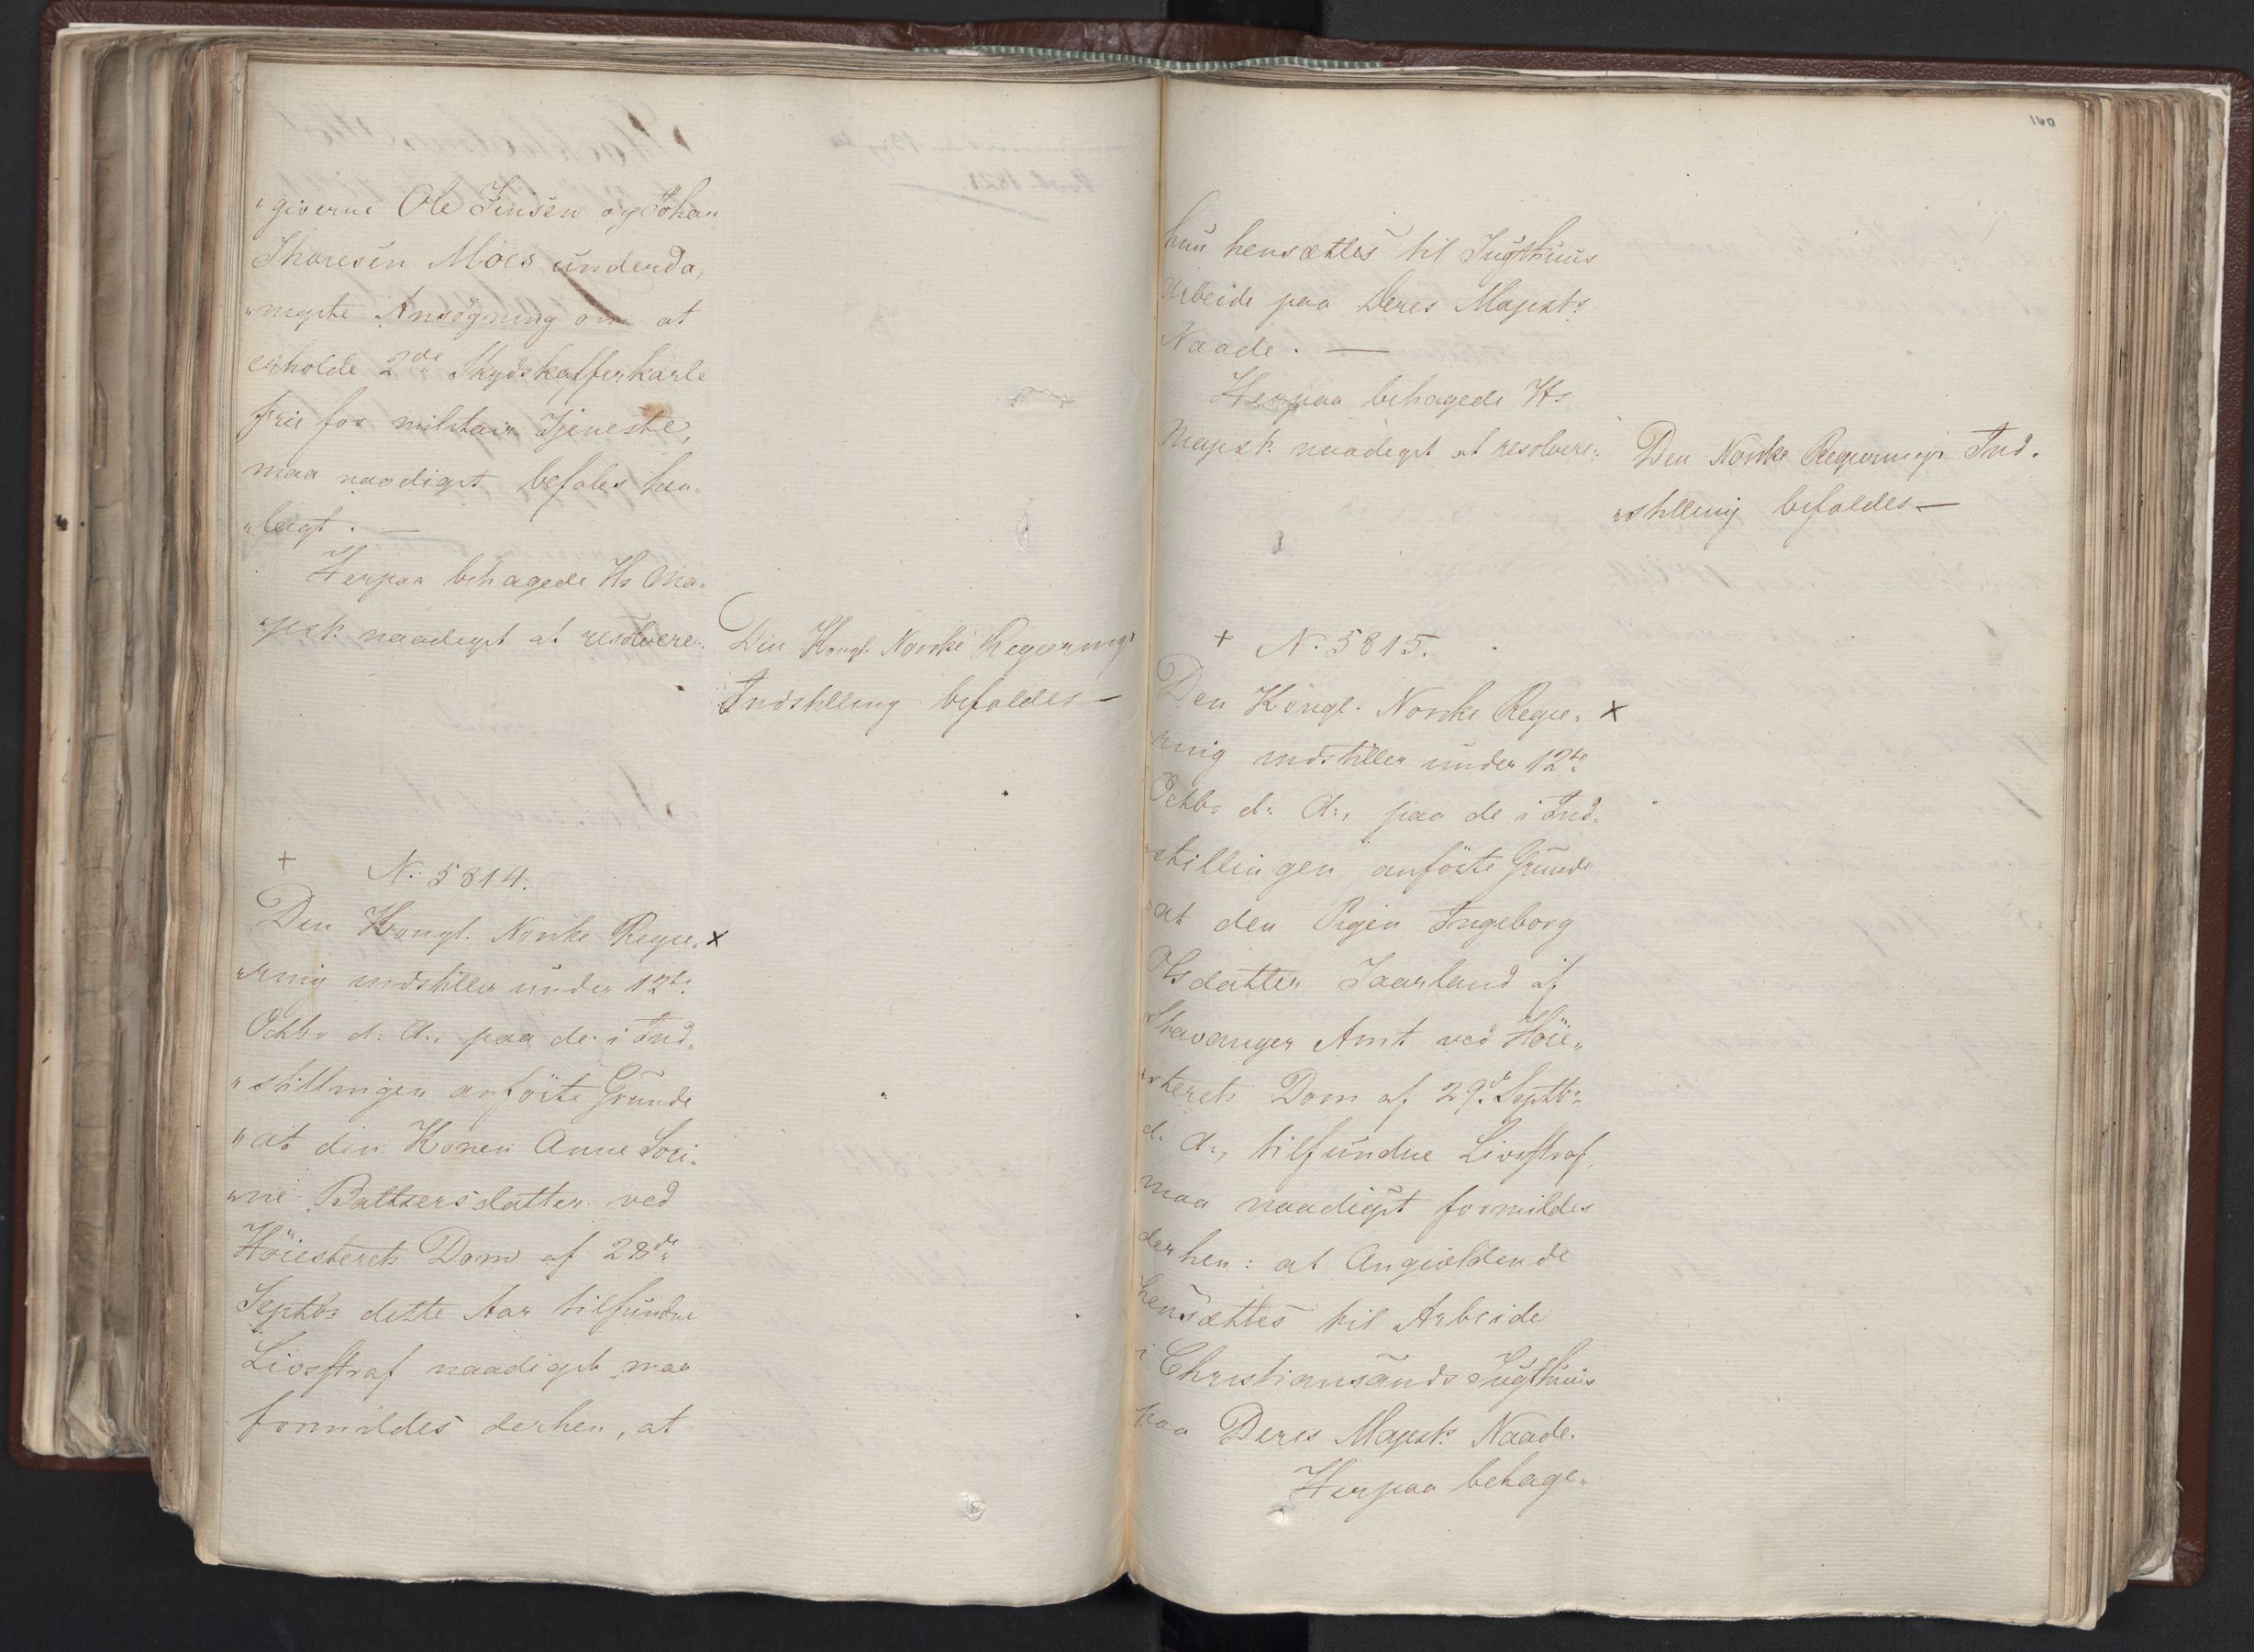 "giverne Ole Jensen og Johan
Thoresen Moes underda,
"nigste Ansögning om at
erholde 2de Skydskafferkarle
frie for militair Tjeneste,
maa naadigst befales hen„
"lagt. —
Herpaa behagede Hs Ma„
"jest. naadigst at resolvere:
Den Kongl. Norske Regierings
Indstilling befaldes —
+ N: 5814.
Den Kongl. Norske Regie„ x
"ring indstiller under 12te
Octbr d: A:, paa de i Ind„
"stillingen anförte Grunde
"at den Konen Anne Sori„
"ne Baltzersdatter ved
Höiesterets Dom af 28de
Septbr dette Aar tilfundne
Livsstraf naadigst maa
formildes derhen, at
160
hun hensættes til Tugthuus
Arbeide paa Deres Majests
Naade. —
Herpaa behagede Hs
Majest. naadigst at resolvere:
Den Norske Regierings Ind„
"stilling befaldes —
+ N: 5815.
Den Kongl. Norske Regie„ x
"ring indstiller under 12te
Octbr d: A:, paa de i Ind„
"stillingen anförte Grunde
"at den Pigen Ingeborg
datter Jaarland af
Stavanger Amt ved Höie„
"sterets Dom af 29de Septbr
d: A:, tilfundne Livsstraf,
maa naadigst formildes
derhen: at Angieldende
hensættes til Arbeide
i Christiansands Tugthuus
paa Deres Majests Naade.
Herpaa behage„